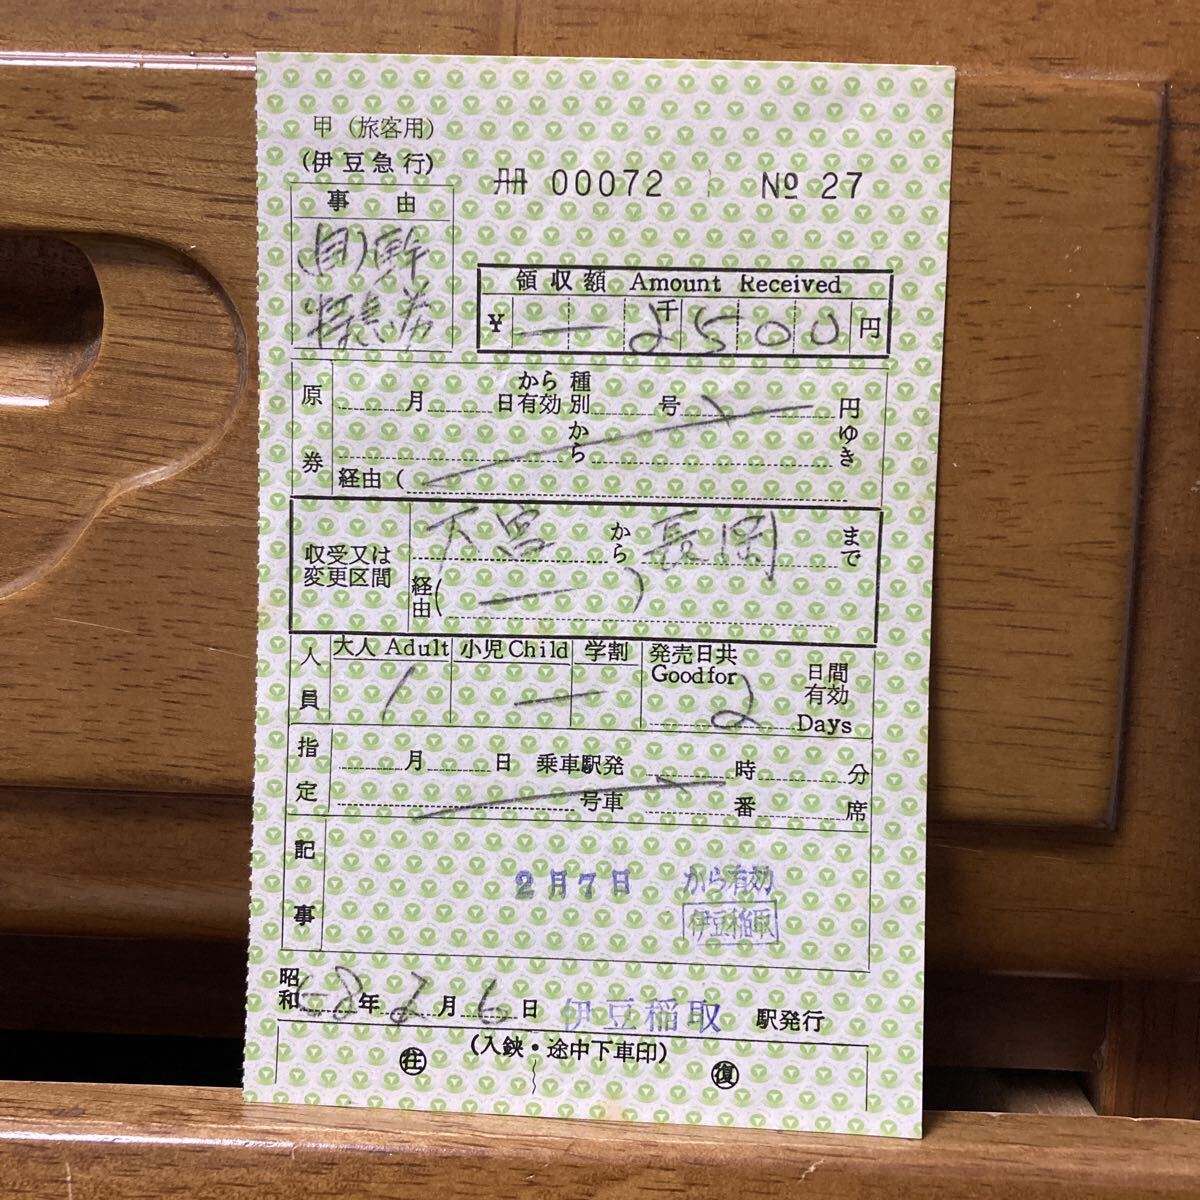 甲(旅客用)
(伊豆急行)
冊 00072 № 27
事由
(自)新
特急券
領収額 Amount Received
¥ 千 2500 円
原券
月 日から有効 種別 号 円
から ゆき
経由(
収受又は変更区間
上野 から 長岡 まで
経由( )
人員
大人 Adult 小児 Child 学割 発売日共
Goodfor 日間有効
1 2 Days
指定
月 日 乗車駅発 時 分
号車 番 席
記事
2月7日 から有効
伊豆稲取
昭和 年 2月6日 伊豆稲取 駅発行
(入鋏・途中下車印)
往 復